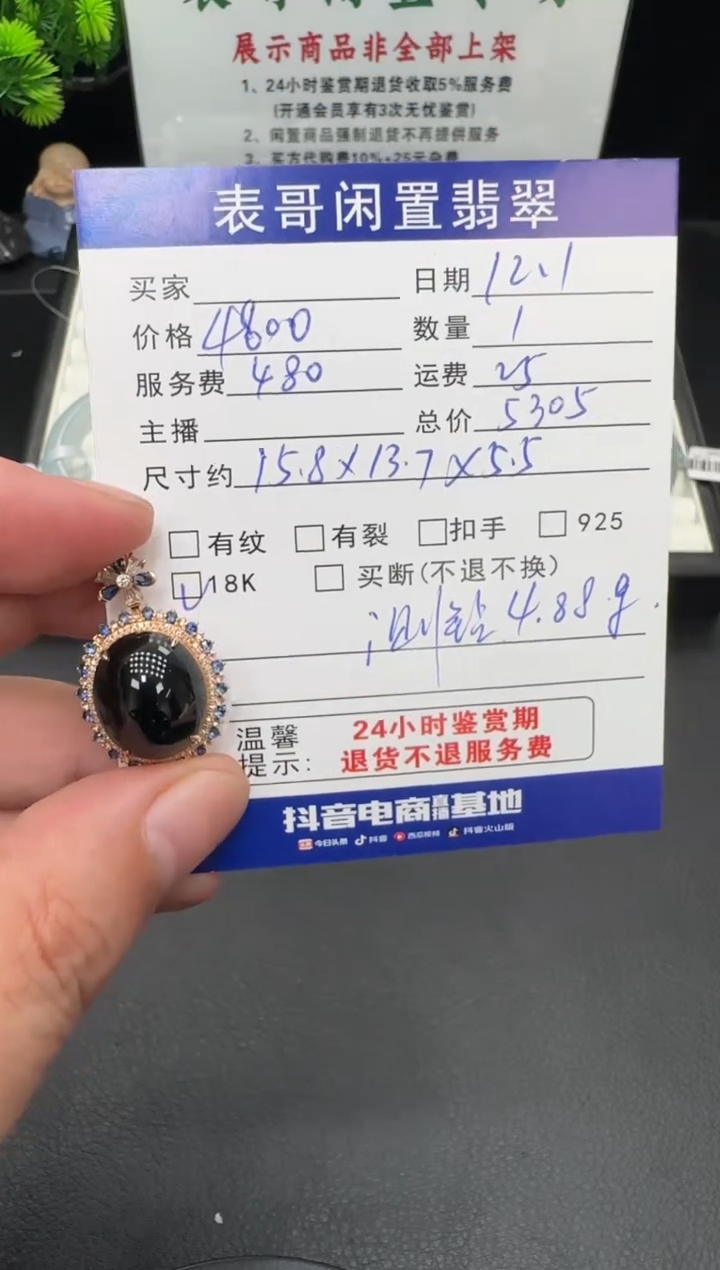 展示商品非全部上架
1、24小时鉴赏期退货收取5%服务费
(开通会员享有3次无忧鉴赏)
2、闲置商品强制退货不再提供服务
3、买方代购费10%+25元杂费
表哥闲置翡翠
买家 日期 12.1
价格 4800 数量 1
服务费 480 运费 25
主播 总价 5305
尺寸约 15.8×13.7×5.5
有纹 有裂 扣手 925
18K 买断(不退不换)
测钻 4.88g.
温馨提示: 24小时鉴赏期
退货不退服务费
抖音电商直播基地
今日头条 抖音 西瓜视频 抖音火山版